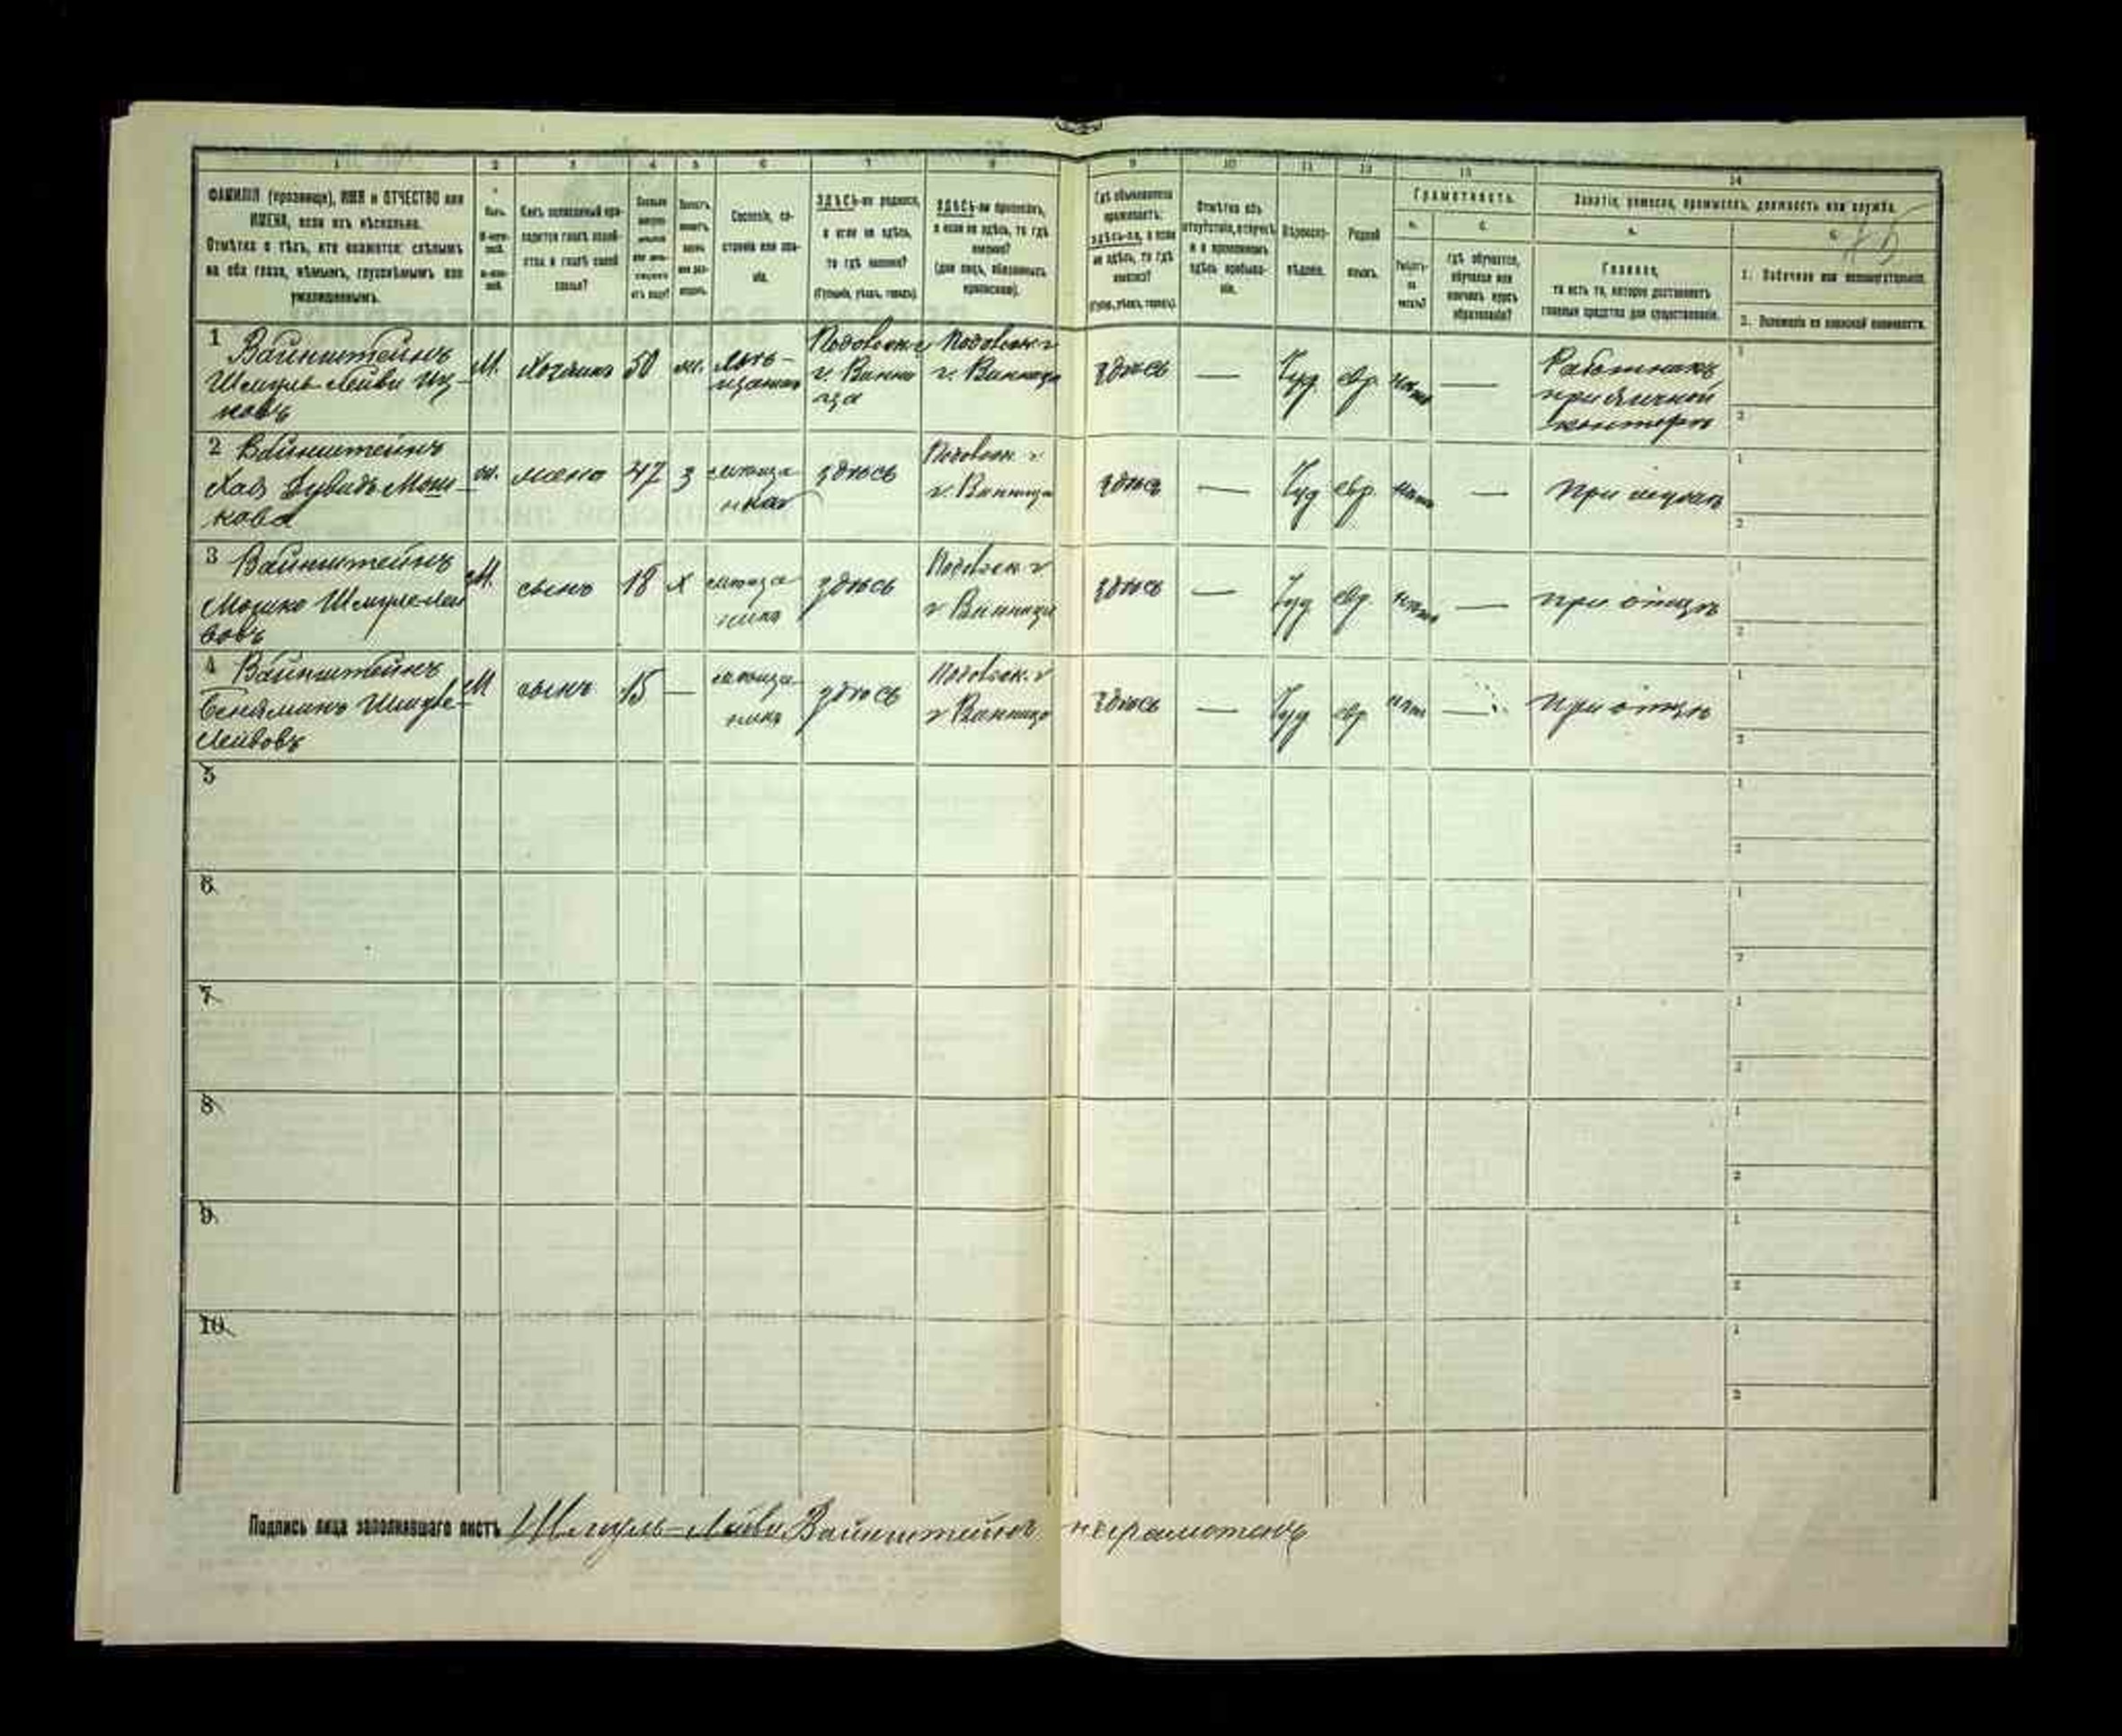 1 2 3 4 5 6 7 8 9 10 11 12 13 14
ФАМИЛІЯ (прозвище), ИМЯ и ОТЧЕСТВО или
ИМЕНА, если ихъ нѣсколько.
Отмѣтка о тѣхъ, кто окажется: слѣпымъ
на оба глаза, нѣмымъ, глухонѣмымъ или
умалишеннымъ.
Полъ.
Сословіе, со-
стояніе или зва-
ніе.
ЗДѢСЬ-ли родился,
а если не здѣсь,
то гдѣ именно?
(Губернія, уѣздъ, городъ).
ЗДѢСЬ-ли приписанъ,
а если не здѣсь, то гдѣ
именно?
(для лицъ, обязанныхъ
припискою).
Гдѣ обыкновенно
проживаетъ:
здѣсь-ли, а если
не здѣсь, то гдѣ
именно?
(Губ., уѣздъ, городъ).
Отмѣтка объ
отсутствіи, отлучкѣ
и о временномъ
здѣсь пребыва-
ніи.
Вѣроиспо-
вѣданіе.
Родной
языкъ.
Грамотность.
а. б.
Умѣетъ-
ли
читать?
гдѣ обучается,
обучался или
кончилъ курсъ
образованія?
Занятіе, ремесло, промыселъ, должность или служба.
а. б.
Главное,
то есть то, которое доставляетъ
главныя средства для существованія.
1. Побочное или вспомогательное.
2. Положеніе по воинской повинности.
1 Вайнштейнъ
Шмуль-Лейви Иц-
ковъ
М. Хозяинъ 50
Подольск г
г. Винни
ца
Подольск г
г. Винница
здѣсь — Іуд. евр. нѣтъ —
Работникъ
при
конторѣ
2 Вайнштейнъ
Хая Дувидъ Мош-
кова
жена 47 З
мѣща
нка
здѣсь
Подольск г
г. Винница
здѣсь — Іуд евр. нѣтъ — при мужѣ
3 Вайнштейнъ
Мошко Шмуле-Лей
вовъ
М. сынъ 18 Х здѣсь
Подольск г
г Винница
здѣсь — Іуд евр. нѣтъ — при отцѣ
4 Вайнштейнъ
Беньяминъ Шмуле-
Лейвовъ
М сынъ 15 — здѣсь
Подольск. г
г Винница
здѣсь — Іуд евр нѣтъ — при отцѣ
5
6
7
8
9
10
Подпись лица заполнявшаго листъ Шмуль-Лейви Вайнштейнъ неграмотенъ